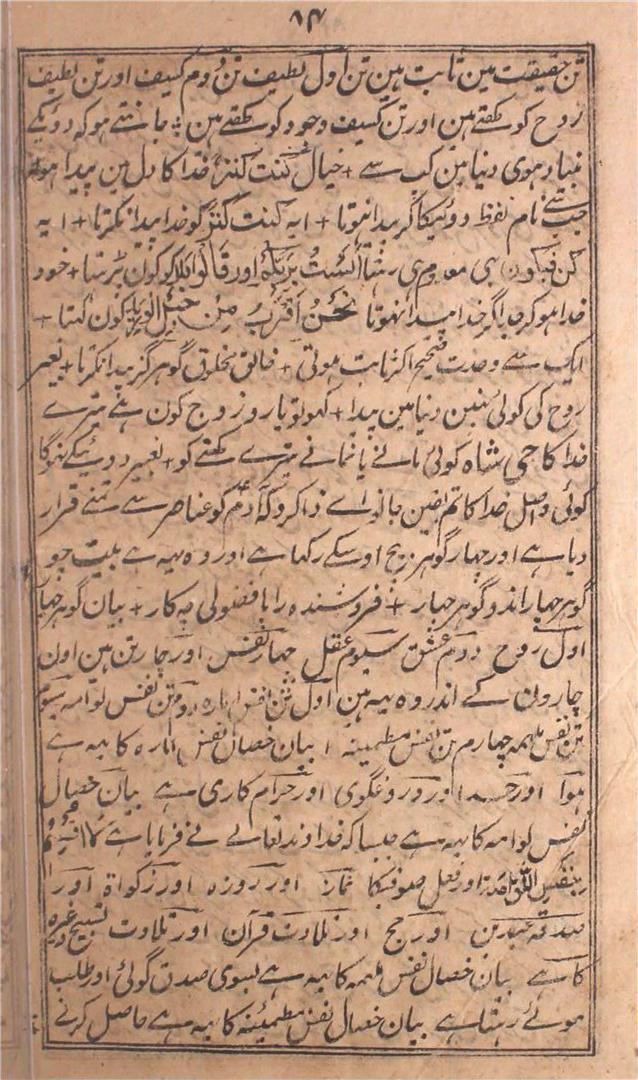 ۸۴
تن حقیقت مین ثابت ہین تن اول لطیف تن دوم کسیف اور تن لطیف
روح کو کھتے ہین اور تن کسیف وجود کو کھتے ہین جانتے ہو کہ دویکے
بنیاد ہوی دنیا مین کب سے + خیال کنت کنزًا خدا کا دل مین پیدا ہوا
جب سے نام لفظ دویکا گر پیدا نہوتا + ایہ کنت کنز کو خدا پیدا نکرتا + ایہ
کن فیکون بی معدوم ی رہتا الست بربکم اور قالوا بلا کو کون پڑہتا + خود
خدا ہو کر جا اگر خدا پیدا نہوتا نحن اقرب من حبل الورید کون کہتا +
ایک سے وحدت صحیح اکثر ثابت ہوتی + خالق مخلوق گوہر گز پیدا نکرتا + بغیر
روح کی کوئی نہین دنیا مین پیدا + کہو تو یارو زوج کون ہے میرے
خدا کا جی شاہ کوئی مانے یا نمانے میرے کہنے کو + بغیر دویکے نہوگا
کوئی واصل خدا کا تم یقین جانو اے ذاکرو کہ آدم کو عناصر سے تہے قرار
دیا ہے اور چہار گوہر بیچ اوسکے رکہا ہے اور وہ یہہ ہے بیت جو
گوہر چہار اند و گوہر چہار + فروشندہ را با فضولی چہ کار + بیان گوہر چہا
اول روح دوم عشق سیوم عقل چہار نفس اور چار تن ہین اون
چارون کے اندر وہ یہہ ہین اول تن نفس امارہ دوم تن نفس لوامہ سیوم
تن نفس ملہمہ چہارم تن نفس مطمئینہ ۱ بیان خصال نفس امارہ کا یہہ ہے
ہوا اور حسد اور دروغگوی اور حرام کاری ہے بیان خصال
نفس لوامہ کا یہہ ہے جیسا کہ خداوند تعالے نے فرمایا ہے
بنفس اللوامہ اور فعل صوفیکا نماز اور روزہ اور زکواة اور
صدقہ عیدین اور حج اور تلاوت قرآن اور تلاوت تسبیح وغیرہ
کا ہے بیان خصال نفس ملہمہ کا یہہ ہے بسوی صدق گوئی اور طلب
مولے رہتا ہے بیان خصال نفس مطمئنہ کا یہہ ہے حاصل کرنے